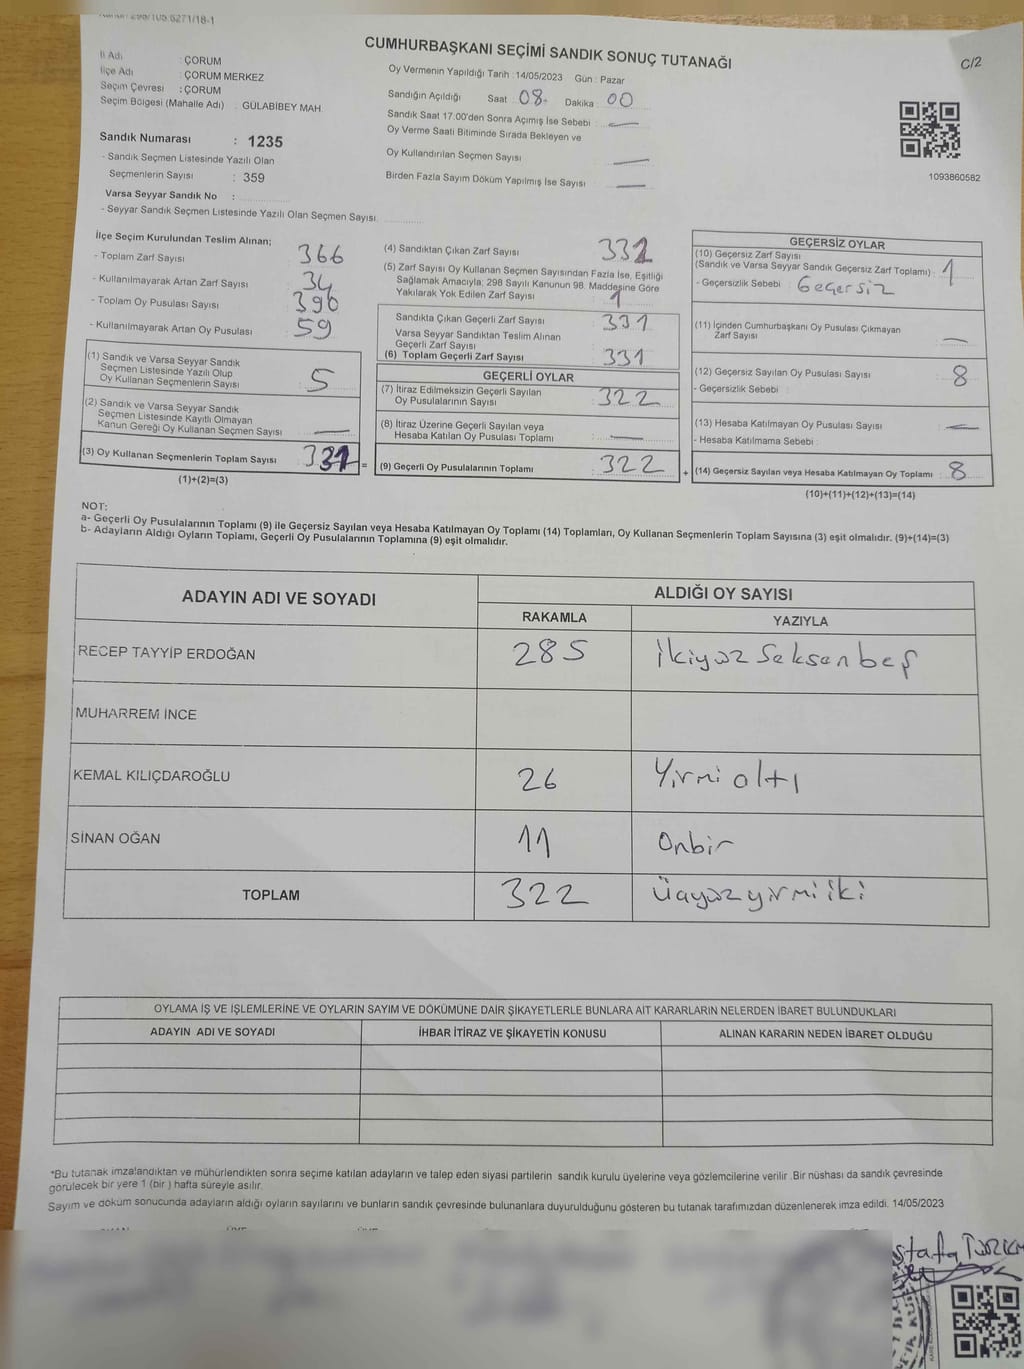 CUMHURBAŞKANI SEÇİMİ SANDIK SONUÇ TUTANAĞI
C/2
İl Adı : ÇORUM
İlçe Adı : ÇORUM MERKEZ
Seçim Çevresi : ÇORUM
Seçim Bölgesi (Mahalle Adı) : GÜLABİBEY MAH.
Sandık Numarası : 1235
- Sandık Seçmen Listesinde Yazılı Olan
Seçmenlerin Sayısı : 359
Varsa Seyyar Sandık No :
- Seyyar Sandık Seçmen Listesinde Yazılı Olan Seçmen Sayısı:
Oy Vermenin Yapıldığı Tarih :14/05/2023 Gün : Pazar
Sandığın Açıldığı Saat 08 Dakika : 00
Sandık Saat 17.00'den Sonra Açımış İse Sebebi : —
Oy Verme Saati Bitiminde Sırada Bekleyen ve
Oy Kullandırılan Seçmen Sayısı —
Birden Fazla Sayım Döküm Yapılmış İse Sayısı —
1093860582
İlçe Seçim Kurulundan Teslim Alınan;
- Toplam Zarf Sayısı 366
- Kullanılmayarak Artan Zarf Sayısı : 34
- Toplam Oy Pusulası Sayısı : 390
- Kullanılmayarak Artan Oy Pusulası : 59
(1) Sandık ve Varsa Seyyar Sandık
Seçmen Listesinde Yazılı Olup
Oy Kullanan Seçmenlerin Sayısı : 5
(2) Sandık ve Varsa Seyyar Sandık
Seçmen Listesinde Kayıtlı Olmayan
Kanun Gereği Oy Kullanan Seçmen Sayısı : —
(3) Oy Kullanan Seçmenlerin Toplam Sayısı : 331 =
(1)+(2)=(3)
(4) Sandıktan Çıkan Zarf Sayısı 332
(5) Zarf Sayısı Oy Kullanan Seçmen Sayısından Fazla İse, Eşitliği
Sağlamak Amacıyla; 298 Sayılı Kanunun 98. Maddesine Göre
Yakılarak Yok Edilen Zarf Sayısı : 1
Sandıkta Çıkan Geçerli Zarf Sayısı : 331
Varsa Seyyar Sandıktan Teslim Alınan
Geçerli Zarf Sayısı
(6) Toplam Geçerli Zarf Sayısı : 331
GEÇERLİ OYLAR
(7) İtiraz Edilmeksizin Geçerli Sayılan
Oy Pusulalarının Sayısı : 322
(8) İtiraz Üzerine Geçerli Sayılan veya
Hesaba Katılan Oy Pusulası Toplamı : —
(9) Geçerli Oy Pusulalarının Toplamı : 322 +
GEÇERSİZ OYLAR
(10) Geçersiz Zarf Sayısı
(Sandık ve Varsa Seyyar Sandık Geçersiz Zarf Toplamı) : 1
- Geçersizlik Sebebi : Geçersiz
(11) İçinden Cumhurbaşkanı Oy Pusulası Çıkmayan
Zarf Sayısı : —
(12) Geçersiz Sayılan Oy Pusulası Sayısı : 8
- Geçersizlik Sebebi :
(13) Hesaba Katılmayan Oy Pusulası Sayısı : —
- Hesaba Katılmama Sebebi :
(14) Geçersiz Sayılan veya Hesaba Katılmayan Oy Toplamı : 8
(10)+(11)+(12)+(13)=(14)
NOT:
a- Geçerli Oy Pusulalarının Toplamı (9) ile Geçersiz Sayılan veya Hesaba Katılmayan Oy Toplamı (14) Toplamları, Oy Kullanan Seçmenlerin Toplam Sayısına (3) eşit olmalıdır. (9)+(14)=(3)
b- Adayların Aldığı Oyların Toplamı, Geçerli Oy Pusulalarının Toplamına (9) eşit olmalıdır.
ADAYIN ADI VE SOYADI
ALDIĞI OY SAYISI
RAKAMLA YAZIYLA
RECEP TAYYİP ERDOĞAN 285 ikiyüz Seksenbeş
MUHARREM İNCE
KEMAL KILIÇDAROĞLU 26 Yirmi altı
SİNAN OĞAN 11 Onbir
TOPLAM 322 Üçyüzyirmi iki
OYLAMA İŞ VE İŞLEMLERİNE VE OYLARIN SAYIM VE DÖKÜMÜNE DAİR ŞİKAYETLERLE BUNLARA AİT KARARLARIN NELERDEN İBARET BULUNDUKLARI
ADAYIN ADI VE SOYADI İHBAR İTİRAZ VE ŞİKAYETİN KONUSU ALINAN KARARIN NEDEN İBARET OLDUĞU
*Bu tutanak imzalandıktan ve mühürlendikten sonra seçime katılan adayların ve talep eden siyasi partilerin sandık kurulu üyelerine veya gözlemcilerine verilir .Bir nüshası da sandık çevresinde
görülecek bir yere 1 (bir ) hafta süreyle asılır.
Sayım ve döküm sonucunda adayların aldığı oyların sayılarını ve bunların sandık çevresinde bulunanlara duyurulduğunu gösteren bu tutanak tarafımızdan düzenlenerek imza edildi. 14/05/2023